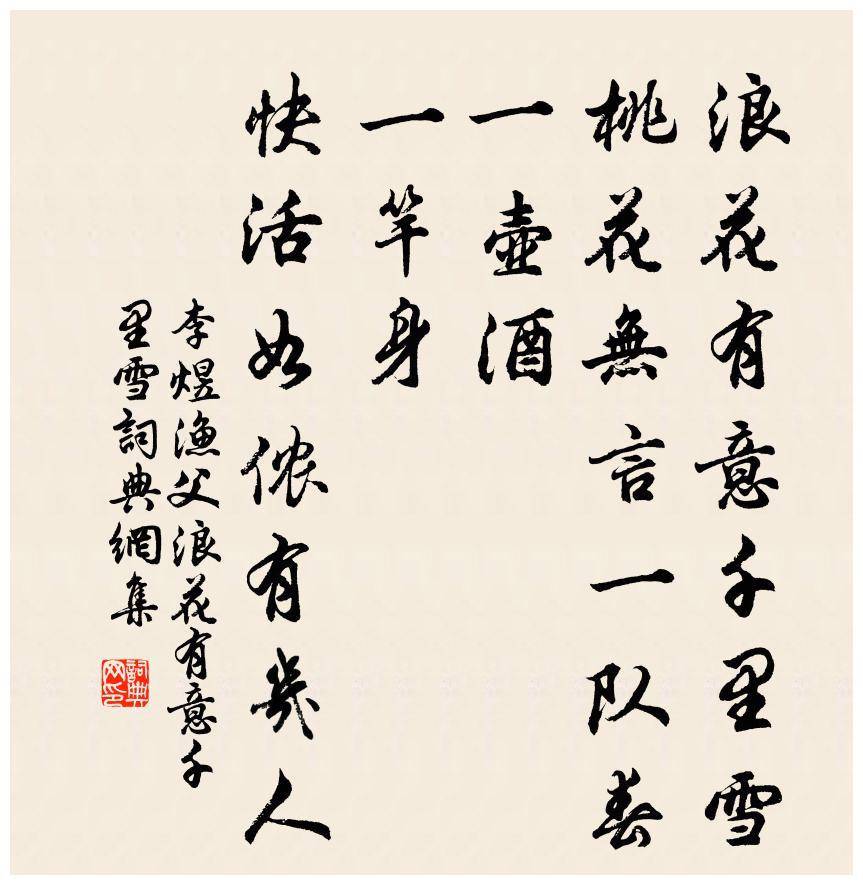 浪花有意千里雪
桃花無言一队春
一壺酒
一竿身
快活如侬有幾人
李煜漁父浪花有意千
里雪詞典網集
詞典网印